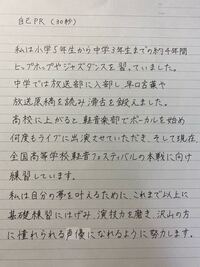 自己PR（30秒）
私は小学5年生から中学3年生までの約4年間
ヒップホップやジャズダンスを習っていました。
中学では放送部に入部し、早口言葉や
放送原稿を読み滑舌を鍛えました。
高校に上がると軽音楽部でボーカルを始め
何度もライブに出演させていただき、そして現在、
全国高等学校軽音フェスティバルの本戦に向け
練習しています。
私は自分の夢を叶えるために、これまで以上に
基礎練習にはげみ、演技力を磨き、沢山の方
に憧れられる声優になれるように努力します。